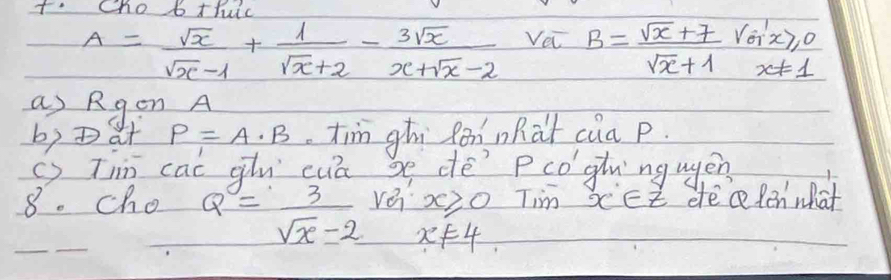 7. Cho b thức
A = \frac{\sqrt{x}}{\sqrt{x}-1} + \frac{1}{\sqrt{x}+2} - \frac{3\sqrt{x}}{x+\sqrt{x}-2} Và B = \frac{\sqrt{x}+7}{\sqrt{x}+1} Với x ⩾ 0 x ≠ 1
a) Rgọn A
b) Đặt P = A.B. tìm gtrị lớn nhất của P.
c) Tìm các gtrị của x để P có gtrị nguyên
8. Cho Q = \frac{3}{\sqrt{x}-2} với x ⩾ 0 x ≠ 4 Tìm x ∈ Z để Q lớn nhất